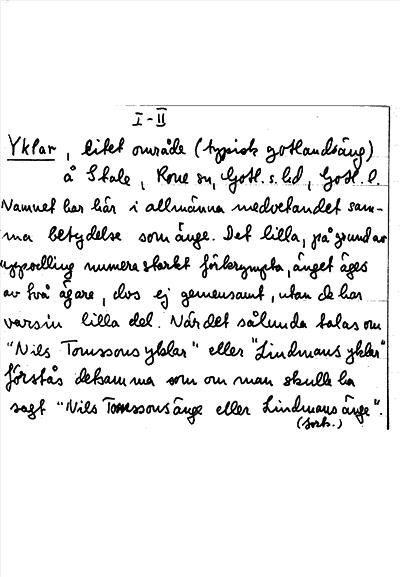 I-II
Yklar, litet område (typisk gotlandsäng)
å Stale, Rone sn, Gotl. s. hd, Gotl. l.
Namnet har här i allmänna medvetandet sam-
ma betydelse som änge. Det lilla, på grund av
uppodling numera starkt förkrympta, änget äges
av två ägare, dvs ej gemensamt, utan de har
varsin lilla del. När det sålunda talas om
"Nils Tomssons yklar" eller "Lindmans yklar"
förstås detsamma som om man skulle ha
sagt "Nils Tomssons änge eller Lindmans änge".
(forts.)